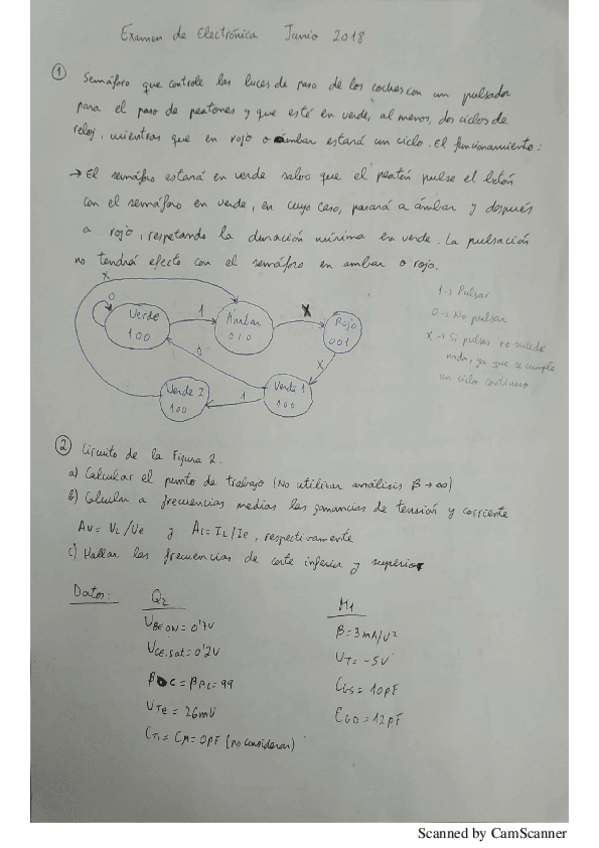 Examen de Electrónica Junio 2018
① Semáforo que controle las luces de paso de los coches con un pulsador
para el paso de peatones y que esté en verde, al menos, dos ciclos de
reloj, mientras que en rojo o ámbar estará un ciclo. El funcionamiento:
→ El semáforo estará en verde salvo que el peatón pulse el botón
con el semáforo en verde, en cuyo caso, pasará a ámbar y después
a rojo, respetando la duración mínima en verde. La pulsación
no tendrá efecto con el semáforo en ambar o rojo.
X
0
Verde
100
1
Ámbar
010
X
Rojo
001
1 -> Pulsar
0 -> No pulsar
X -> Si pulsas no sucede
nada, ya que se cumple
un ciclo continuo
0
X
Verde 2
100
1
Verde 1
100
② Circuito de la Figura 2.
a) Calcular el punto de trabajo (No utilizar análisis β→∞)
b) Calcular a frecuencias medias las ganancias de tensión y corriente
Av = VL/Ve y AI = IL/Ie, respectivamente
c) Hallar las frecuencias de corte inferior y superior
Datos:
Q2
VBE ON = 0'7V
VCE.sat = 0'2V
βDC = βAC = 99
VTe = 26mV
Cπ = Cμ = 0pF (no considerar)
M1
β = 3mA/V²
VT = -5V
CGS = 10pF
CGD = 12pF
Scanned by CamScanner